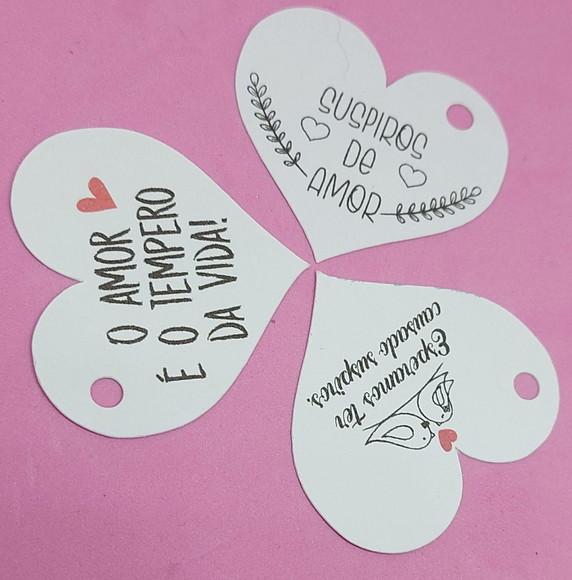 SUSPIROS
DE
AMOR
O AMOR
É O TEMPERO
DA VIDA!
Esperamos ter
causado suspiros.